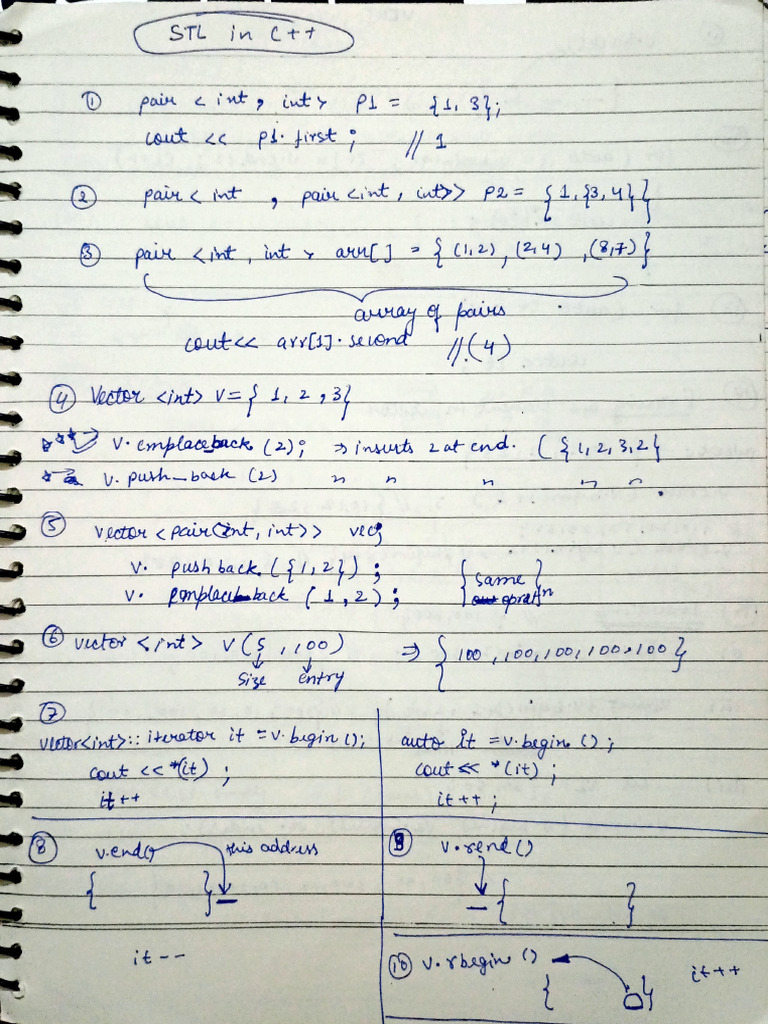 STL in C++
① pair < int, int> P1 = {1, 3};
cout << p1.first; // 1
② pair < int , pair <int, int>> P2 = {1, {3, 4}}
③ pair <int, int > arr[] = { (1,2), (2,4) , (8,7) }
array of pairs
cout<< arr[1].second //.(4)
④ Vector <int> v = { 1, 2, 3}
v.emplace_back (2); ⇒ inserts 2 at end. ( {1, 2, 3, 2}
v. push_back (2) " " " " "
⑤ vector <pair<int, int>> vec;
v. push back ({1, 2}) ; { same }
v. emplace_back (1, 2) ; { oprat^n
⑥ vector <int> v (5 , 100) ⇒ { 100, 100, 100, 100, 100 }
size entry
⑦
vector<int>:: iterator it = v.begin (); auto it = v.begin ();
cout << *(it) ; cout << *(it) ;
it++ it++ ;
⑧ v.end() this address ⑨ v.rend()
{ } { }
it--
⑩ v.rbegin () it++
{ }